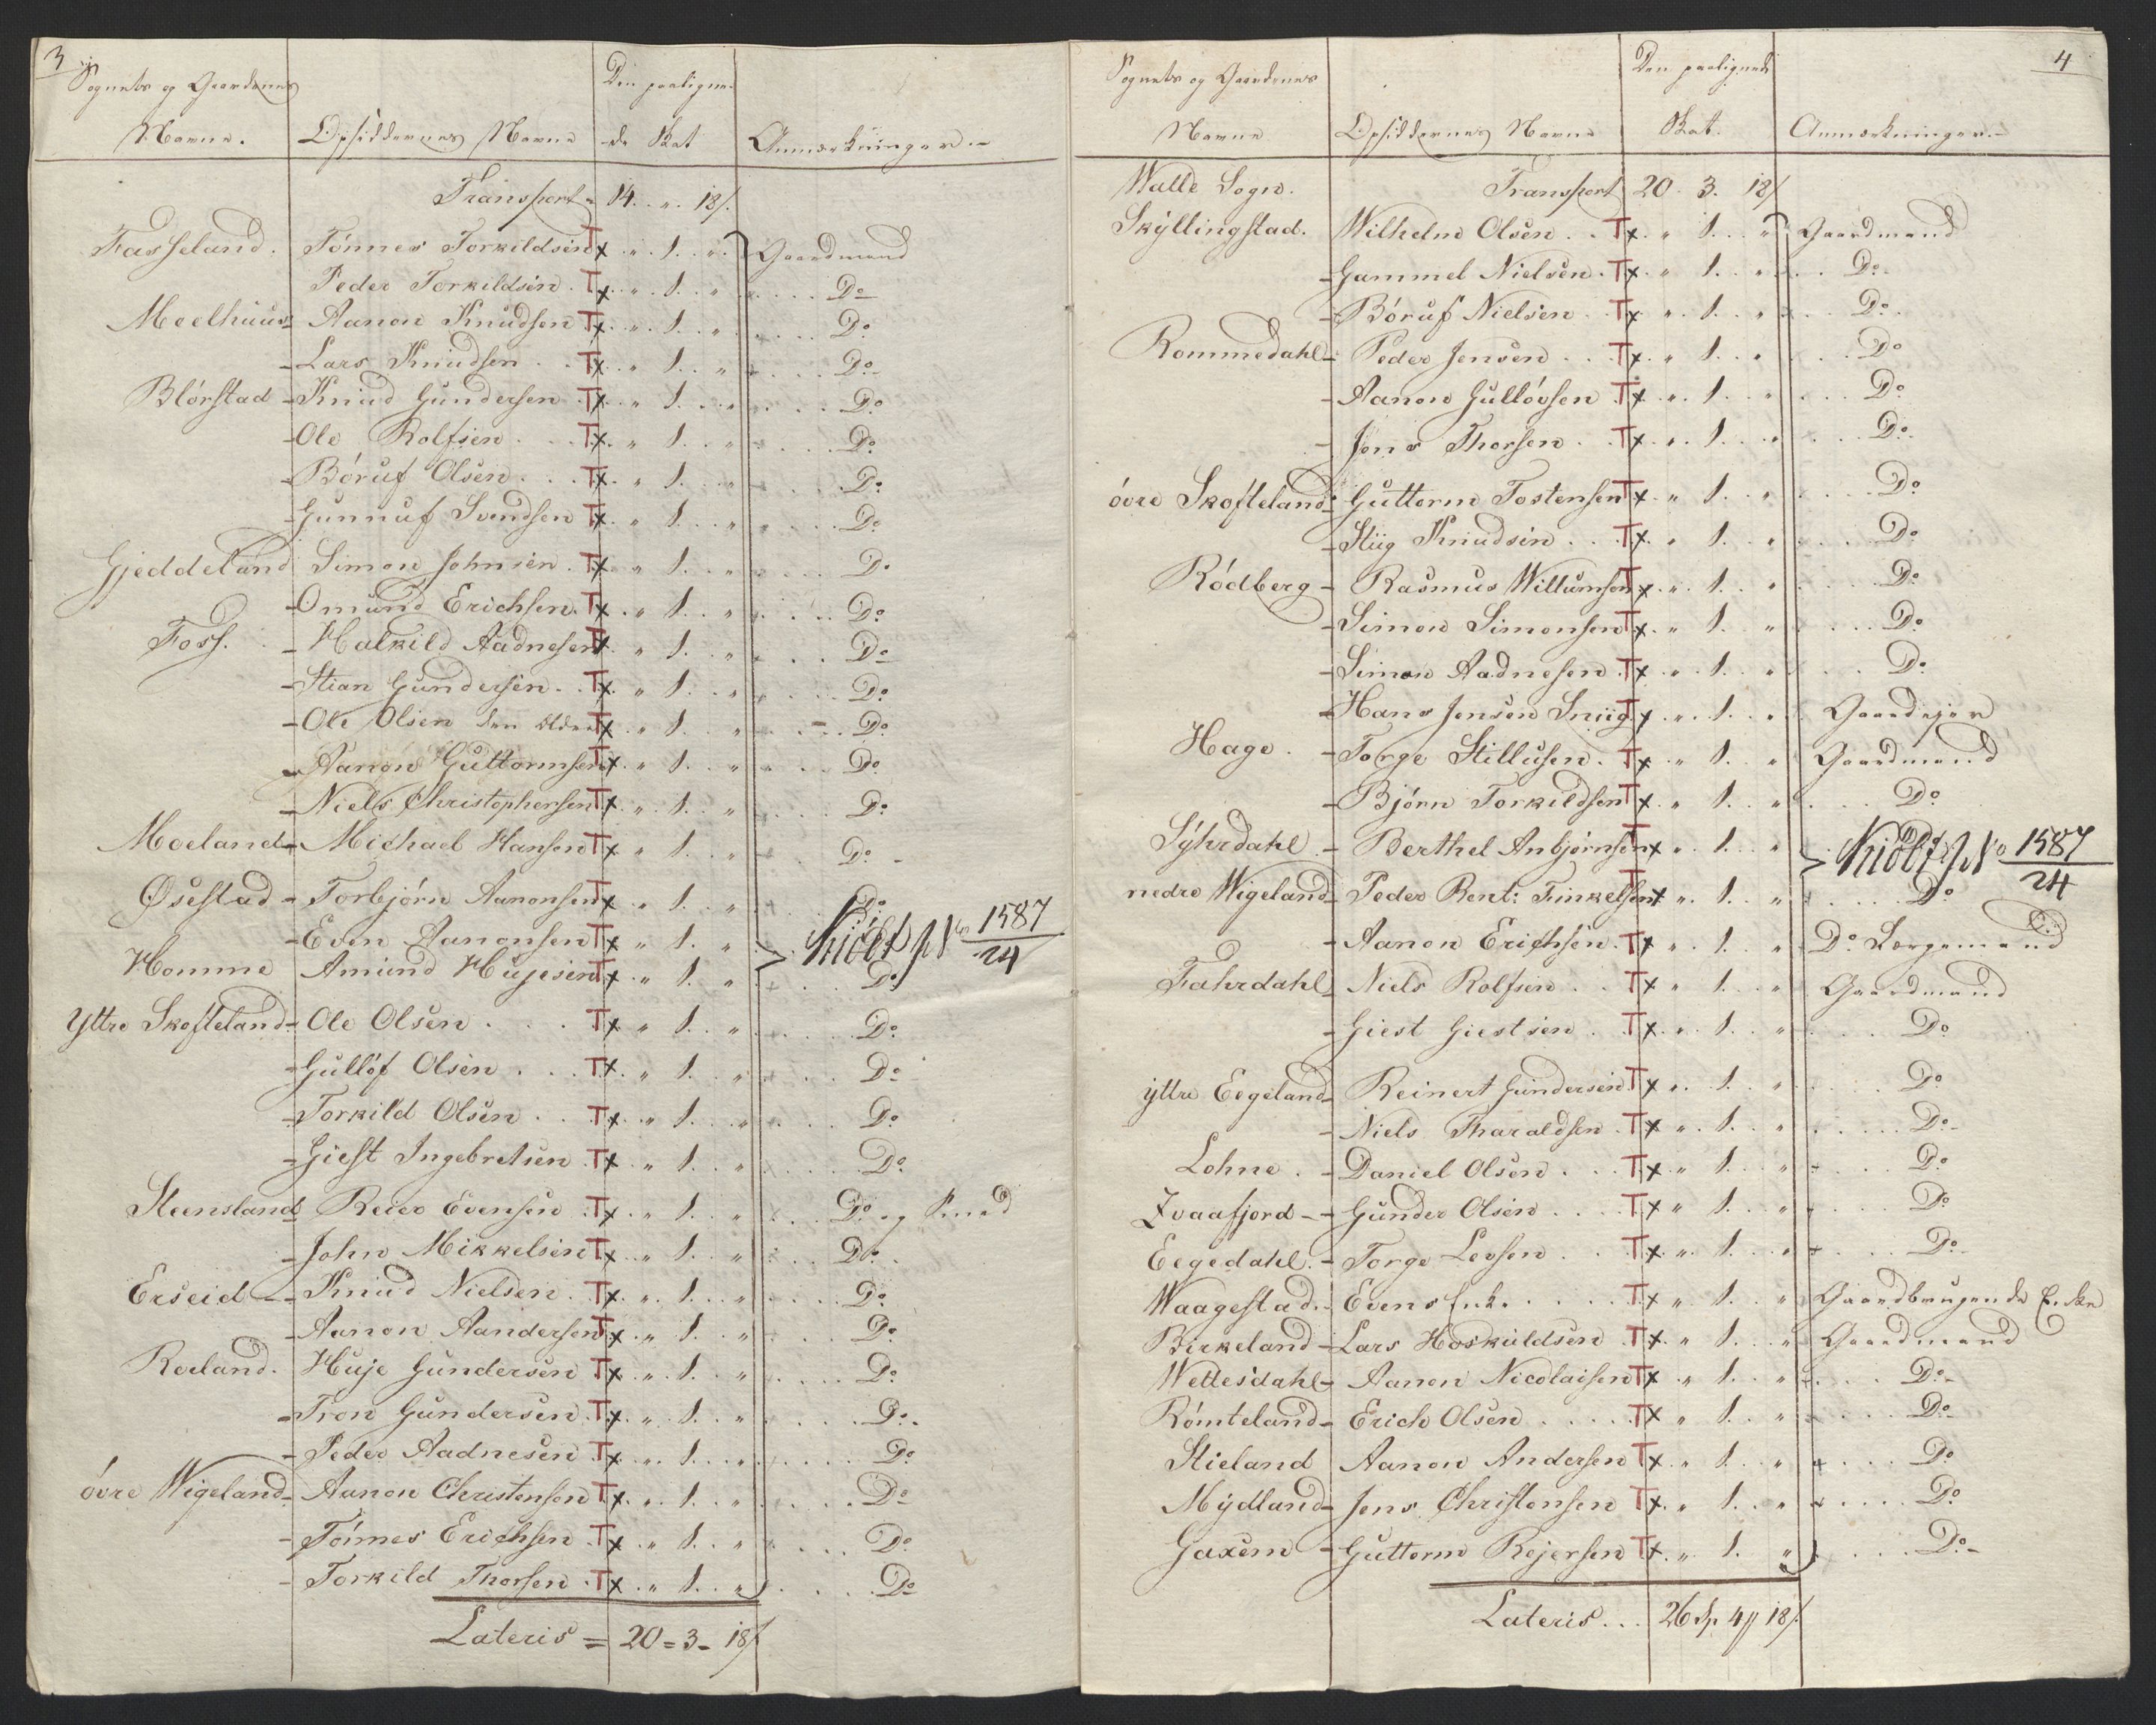 3
Sognets og Gaardenes
Navne. Opsiddernes Navne Den paaligne-
de Skat Anmærkninger.-
Transport = 14. „ . 18/.
Fasseland. Tönnes Torkildsen T x . „ . 1. „ . Gaardmand
Peder Torkildsen. T x . „ . 1. „ . . . . Do
Moelhuus- Aanon Knudsen T x . „ . 1. „ . . . . Do.
- Lars Knudsen . . T x . „ . 1. „ . . . . Do-
Blörstad - Knud Gundersen T x . „ 1. . „ . . . . Do
- Ole Rolfsen . . . T x . „ 1. . „ . . . . Do.
- Böruf Olsen . . . T x . „ 1. . „ . . . . Do.
- Gunnuf Svendsen T x . „ 1. . „ . . . . Do.
Gjeddeland Simon Johnsen . T x . „ 1. . „ . . . . Do
- Omund Erichsen. T x . „ 1. . „ . . . . Do.
Foss. - Halkild Aadnesen T x . „ 1. . „ . . . Do-
- Stian Gundersen. . T x . „ 1. . „ . . . . Do.
- Ole Olsen den ældre T x . „ 1. . „ . . - Do.
- Aanon Guttormsen T x . „ 1. . „ . . . Do
- Niels Christophersen T x . „ . 1. . „ . . . . Do.
Moeland - Michael Hansen T x . „ 1. . „ . . Do. -
Øsestad - Torbjörn Aanonsen T x . „ 1. . „ . . . Do
- Even Aanonsen T x . „ 1. . „ . No 1587/24
Homme Amund Hujesen T x . „ 1. . „ . . . Do
Yttre Skofteland - Ole Olsen . . . . T x . „ 1. . „ . . . . Do.
- Gullöf Olsen . . . T x . „ 1. . „ . . . . Do-
- Torkild Olsen . . T x . . „ 1. . „ . . . . Do.
- Giest Ingebretsen . T x . „ 1. . „ . . . . Do.
Steensland Reier Evensen . T x . „ 1. . „ . . . Do. og Smed
- John Mikkelsen T x . „ 1. . „ . . . Do. .
Erseid - - Knud Nielsen . T x . „ . 1. . „ . . . . Do.
- Aanon Aandersen T x . „ 1. . „ . . . Do.
Roeland. Huje Gundersen T x . „ . 1. . „ . . . . Do.
- Tron Gundersen. T x . „ . 1. . „ . . . . Do. .
- Peder Aadnesen T x . „ . 1. . . „ . . . . Do
övre Wigeland - Aanon Christensen T x . „ . 1. . „ . . . . Do-
- Tönnes Erichsen . T x . „ 1. . „ . . . . Do
- Torkild Thorsen . T x . „ 1. . „ . . . . Do-
Lateris = 20 = 3 - 18/.
4
Sognets og Gaardenes
Navne Opsiddernes Navne Den paalignede
Skat. Anmærkninger.-
Walle Sogn. Transport 20 . 3. 18/
Skyllingstad. Wilhelm Olsen . . T x . „ 1. . . „ Gaardmand
- Gammel Nielsen . T x . „ 1. . „ . . . Do-
- Böruf Nielsen . . T x . „ . 1. . „ . . . Do.
Rommedahl - Peder Jensen . . T x . „ 1. . „ . . . Do
- Aanon Gullövsen T x . „ . 1. . „ . . . . Do
- Jens Thorsen . . T x . „ . 1. . „ . . . Do-
övre Skofteland - Guttorm Tostensen T x . „ 1. . „ . . . . Do
- Stiig Knudsen . . T x . „ 1. . „ . . . . Do
Rödberg - Rasmus Willumsen T x . „ . 1. . „ . . . . Do
- Simon Simonsen T x . „ 1. . „ . . . . Do
- Simon Aadnesen . T x . „ . 1. . „ . . . Do
- Hans Jensen Sniig T x . „ . 1. . „ . Gaardejer
Hage . - Torge Stillufsen . T x . „ 1. . „ Gaardmand
- Bjørn Torkildsen T x . „ 1. . „ . . . Do
Syhrdahl - Berthel Anbjørnsen T x „ . 1. . „ . No 1587/24
nedre Wigeland - Peder Bent: Finkelsen T x „ . 1. . „ . . . . Do
- Aanon Erichsen . T x „ . 1. . „ Do Lægsmand
Fahrdahl - Niels Rolfsen . . T x „ . 1. . „ Gaardmand
- Giest Giestsen . . T x „ . 1. . „ . . . Do
yttre Eegeland - Reinert Gundersen T x „ . 1. . „ . . . . Do
- Niels Tharaldsen . T x „ . 1. . „ . . . . Do-
Lohne . - Daniel Olsen . . . T x „ 1. . „ . . . . Do
Zvaafjord - - Gunder Olsen . . . . T x „ 1. . „ . . . . Do
Eegedahl. - Torge Levsen . . T x „ . 1. . „ . . . . Do-
Waagestad . - Evens Enke . . . . . T x „ 1. . „ Gaardbrugende Enke
Birkeland - Lars Hoskuldsen . T x . „ 1. . „ Gaardmand
Wettesdahl - Aanon Nicolaisen T x . „ 1. . „ . . . Do-
Römteland - Erich Olsen . . . . . T x . „ 1. . „ . . . . Do-
Stieland Aanon Andersen T x . „ 1. . „ . . . . Do
Mydland - Jens Christensen T x . „ 1. . „ . . . . Do.
Gaxem - Guttorm Rejersen T x . „ 1. . „ . . . . Do-
Lateris . . . 26 Sp. 4 # 18/.